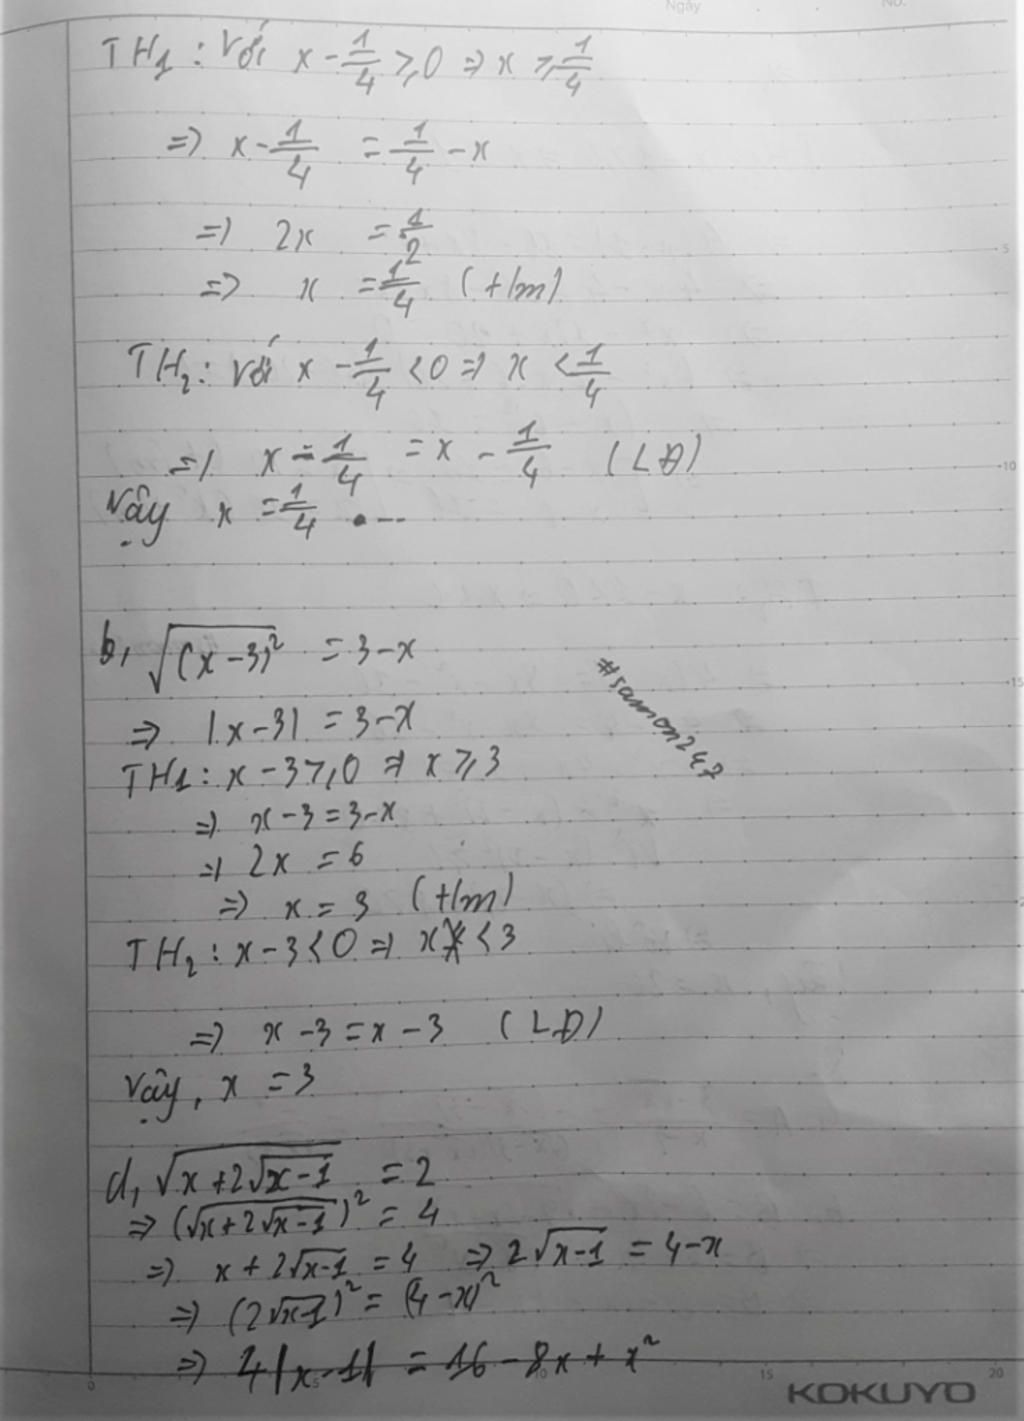 Ngày No.
TH1 : Với x - 1/4 ⩾ 0 => x ⩾ 1/4
=> x - 1/4 = 1/4 - x
=> 2x = 1/2
=> x = 1/4 (t/m)
TH2 : Với x - 1/4 < 0 => x < 1/4
=> x - 1/4 = x - 1/4 (LĐ)
Vậy x = 1/4 ...
b, √(x-3)² = 3-x
=> |x-3| = 3-x
TH1 : x - 3 ⩾ 0 => x ⩾ 3
=> x - 3 = 3 - x
=> 2x = 6
=> x = 3 (t/m)
TH2 : x - 3 < 0 => x < 3
=> x - 3 = x - 3 (LĐ)
Vậy, x = 3
#samon247
d, √(x + 2√(x-1)) = 2
=> (√(x + 2√(x-1)))² = 4
=> x + 2√(x-1) = 4 => 2√(x-1) = 4-x
=> (2√(x-1))² = (4-x)²
=> 4|x-1| = 16 - 8x + x²
5
10
15
0 5 10 15 20
KOKUYO